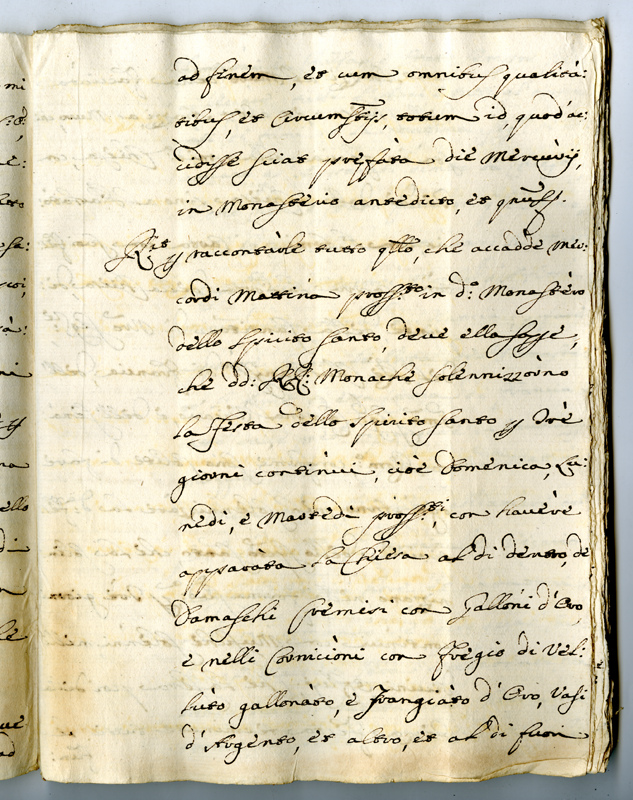 ad finem, et cum omnibus qualità:
tibus, et Circumstijs, totum id, quod ac:
cidisse sciat prefata die Mercurij,
in Monasterio antedicto, et qnus s.
R.it p raccontarle tutto qllo, che accadde Mer:
cordi Mattina pross.to in d.o Monastèro
dello Spirito Santo, deve ella sapere,
che dd: RR: Monache solennizzorno
la Festa dello Spirito Santo p trè
giorni continui, cioè Domenica, Lu:
nedi, e Martedi pross.ti, con havère
apparata la Chiesa al di dentro, de
Damaschi cremisi con Galloni d'Oro,
e nelli Cornicioni con Fregio di Vel:
luto gallonàto, e frangiàto d'Oro, Vasi
d'Argento, et altro, et al di fuori
mi
ello
di
le
ue
ad